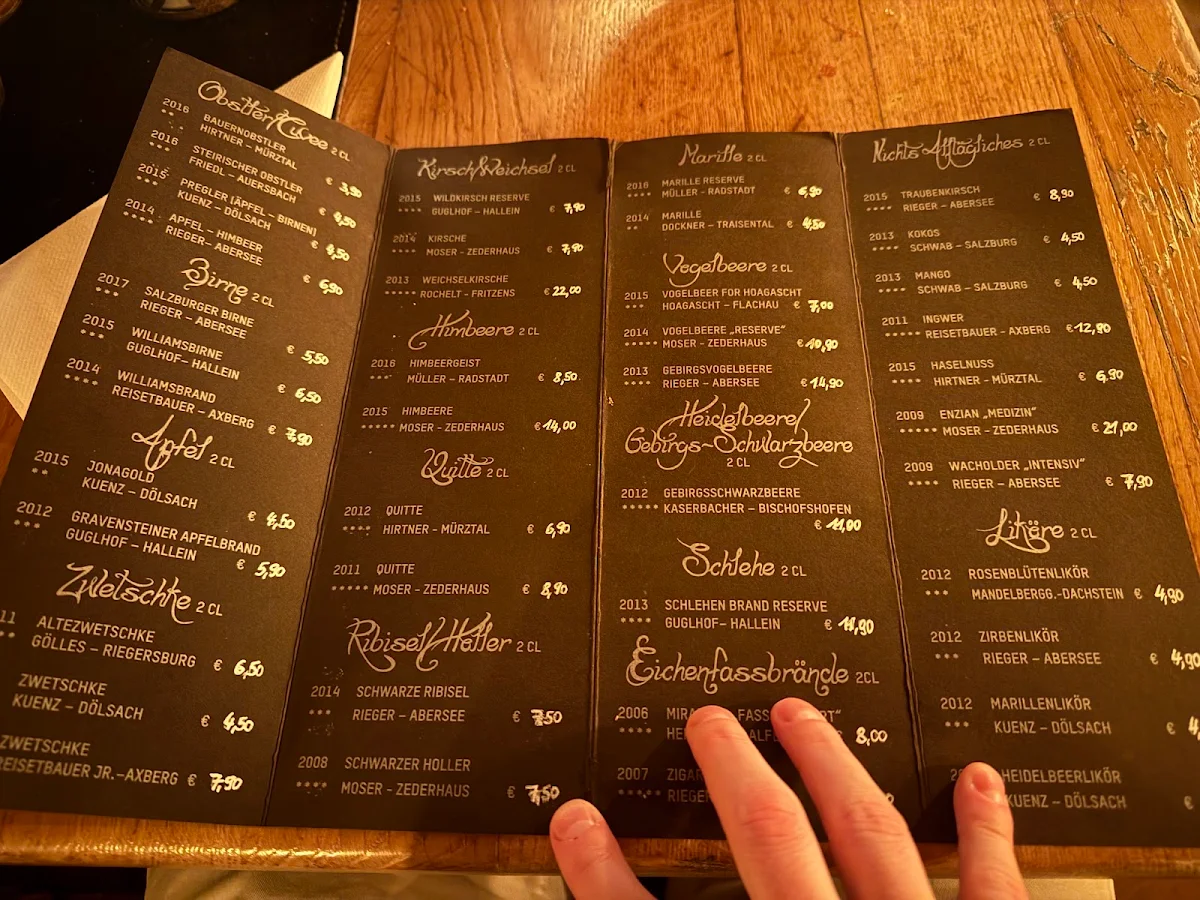 Obstler/Cuvee 2 CL
2016 BAUERNOBSTLER
** HIRTNER – MÜRZTAL € 3,90
2016 STEIRISCHER OBSTLER
** FRIEDL – AUERSBACH € 4,50
2015 PREGLER (ÄPFEL – BIRNEN)
*** KUENZ – DÖLSACH € 4,50
2014 APFEL – HIMBEER
**** RIEGER– ABERSEE € 6,90
Birne 2 CL
2017 SALZBURGER BIRNE
*** RIEGER – ABERSEE € 5,50
2015 WILLIAMSBIRNE
*** GUGLHOF– HALLEIN € 6,50
2014 WILLIAMSBRAND
**** REISETBAUER – AXBERG € 7,90
Apfel 2 CL
2015 JONAGOLD
** KUENZ – DÖLSACH € 4,50
2012 GRAVENSTEINER APFELBRAND
*** GUGLHOF – HALLEIN € 5,90
Zwetschke 2 CL
11 ALTEZWETSCHKE
GÖLLES – RIEGERSBURG € 6,50
ZWETSCHKE
KUENZ – DÖLSACH € 4,50
ZWETSCHKE
REISETBAUER JR.–AXBERG € 7,90
Kirsch/Weichsel 2 CL
2015 WILDKIRSCH RESERVE
**** GUGLHOF – HALLEIN € 7,90
2014 KIRSCHE
**** MOSER – ZEDERHAUS € 7,90
2013 WEICHSELKIRSCHE
***** ROCHELT – FRITZENS € 22,00
Himbeere 2 CL
2016 HIMBEERGEIST
**** MÜLLER – RADSTADT € 8,50
2015 HIMBEERE
***** MOSER – ZEDERHAUS € 14,00
Quitte 2 CL
2012 QUITTE
**** HIRTNER – MÜRZTAL € 6,90
2011 QUITTE
***** MOSER – ZEDERHAUS € 8,90
Ribisel/Holler 2 CL
2014 SCHWARZE RIBISEL
*** RIEGER – ABERSEE € 7,50
2008 SCHWARZER HOLLER
**** MOSER – ZEDERHAUS € 7,50
Marille 2 CL
2016 MARILLE RESERVE
**** MÜLLER – RADSTADT € 6,90
2014 MARILLE
** DOCKNER – TRAISENTAL € 4,50
Vogelbeere 2 CL
2015 VOGELBEER FOR HOAGASCHT
*** HOAGASCHT – FLACHAU € 7,00
2014 VOGELBEERE „RESERVE“
***** MOSER – ZEDERHAUS € 10,90
2013 GEBIRGSVOGELBEERE
**** RIEGER – ABERSEE € 14,90
Heidelbeere/
Gebirgs-Schwarzbeere
2 CL
2012 GEBIRGSSCHWARZBEERE
***** KASERBACHER – BISCHOFSHOFEN
€ 11,00
Schlehe 2 CL
2013 SCHLEHEN BRAND RESERVE
**** GUGLHOF– HALLEIN € 11,90
Eichenfassbrände 2CL
2006 FASS
8,00
2007
RIEGER
Nichts Alltägliches 2 CL
2015 TRAUBENKIRSCH
**** RIEGER – ABERSEE € 8,90
2013 KOKOS
**** SCHWAB – SALZBURG € 4,50
2013 MANGO
**** SCHWAB – SALZBURG € 4,50
2011 INGWER
***** REISETBAUER – AXBERG € 12,90
2015 HASELNUSS
**** HIRTNER – MÜRZTAL € 6,90
2009 ENZIAN „MEDIZIN“
***** MOSER – ZEDERHAUS € 21,00
2009 WACHOLDER „INTENSIV“
**** RIEGER – ABERSEE € 7,90
Liköre 2 CL
2012 ROSENBLÜTENLIKÖR
**** MANDELBERGG.–DACHSTEIN € 4,90
2012 ZIRBENLIKÖR
*** RIEGER – ABERSEE € 4,90
2012 MARILLENLIKÖR
*** KUENZ – DÖLSACH € 4,
HEIDELBEERLIKÖR
KUENZ – DÖLSACH €